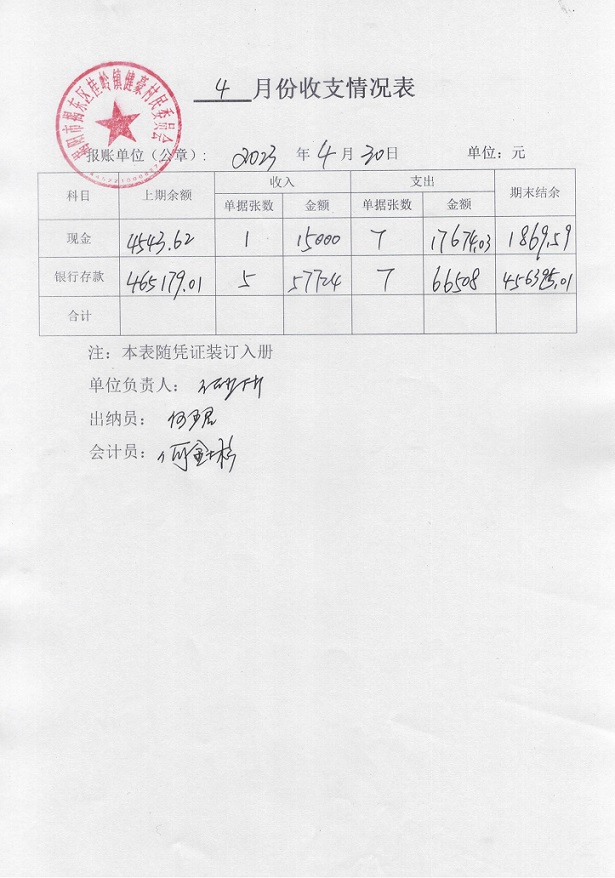 揭阳市揭东区桂岭镇健豪村民委员会
4 月份收支情况表
报账单位（公章）： 2023 年 4 月 30 日 单位：元
科目 上期余额 收入 支出 期末结余
单据张数 金额 单据张数 金额
现金 4543.62 1 15000 7 17674.03 1869.59
银行存款 465179.01 5 57724 7 66508 456395.01
合计
注：本表随凭证装订入册
单位负责人：
出纳员：
会计员：